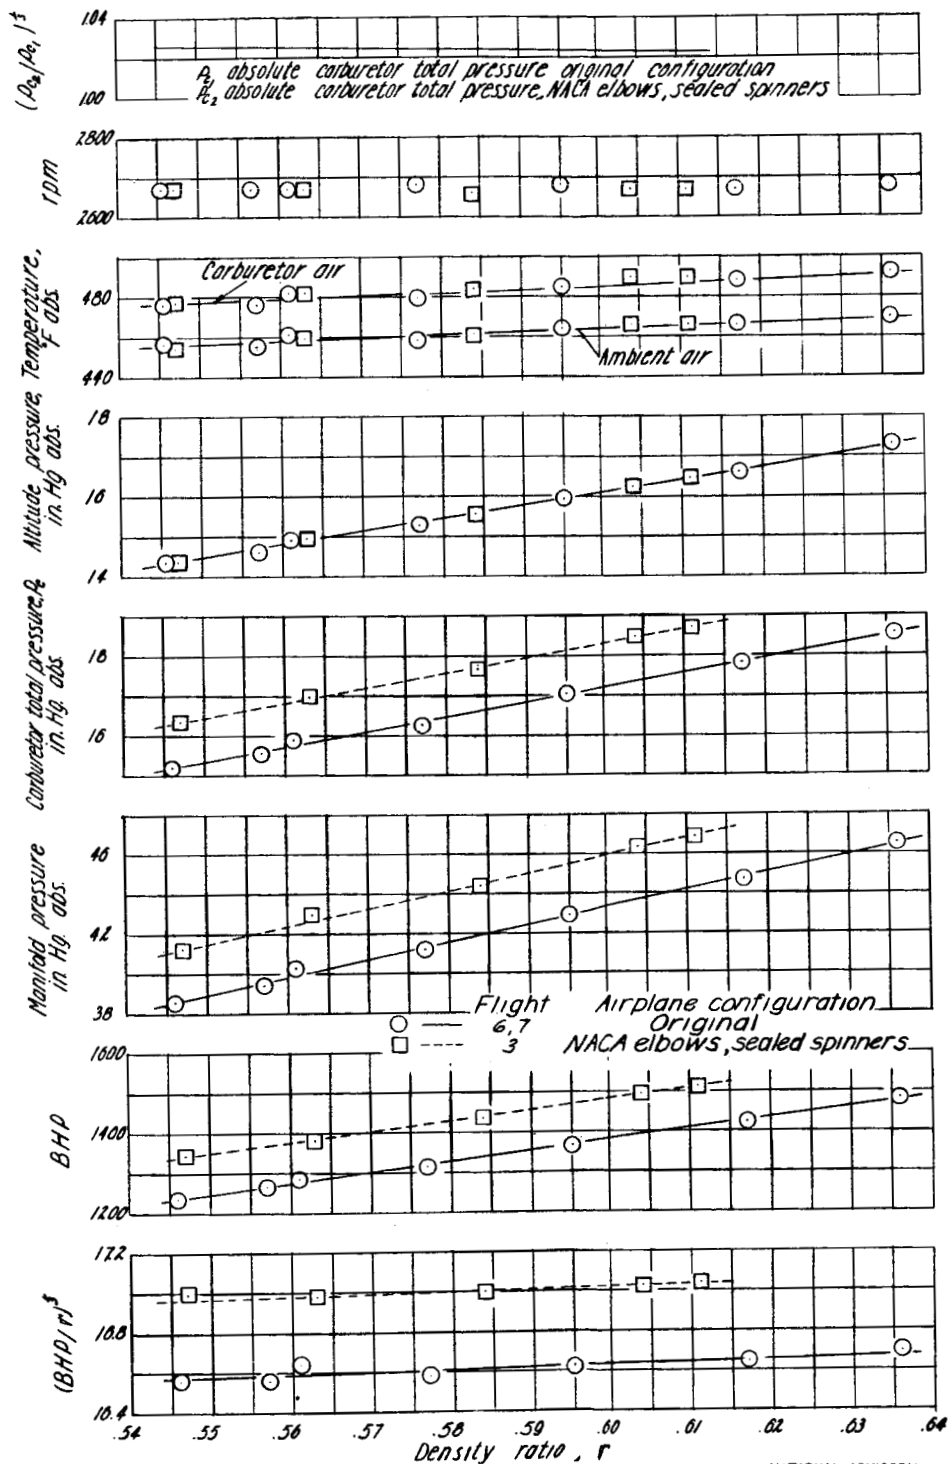 1.04
(Pc2/Pc1)⅓
1.00
Pc1 absolute carburetor total pressure original configuration
Pc2 absolute carburetor total pressure, NACA elbows, sealed spinners
2800
rpm
2600
Temperature,
°F abs.
480
440
Carburetor air
Ambient air
Altitude pressure,
in. Hg abs.
18
16
14
Carburetor total pressure, Pc
in. Hg. abs.
18
16
Manifold pressure
in Hg. abs.
46
42
38
Flight Airplane configuration
6,7 Original
3 NACA elbows, sealed spinners
BHP
1600
1400
1200
(BHP/r)⅓
17.2
16.8
16.4
.54 .55 .56 .57 .58 .59 .60 .61 .62 .63 .64
Density ratio, r